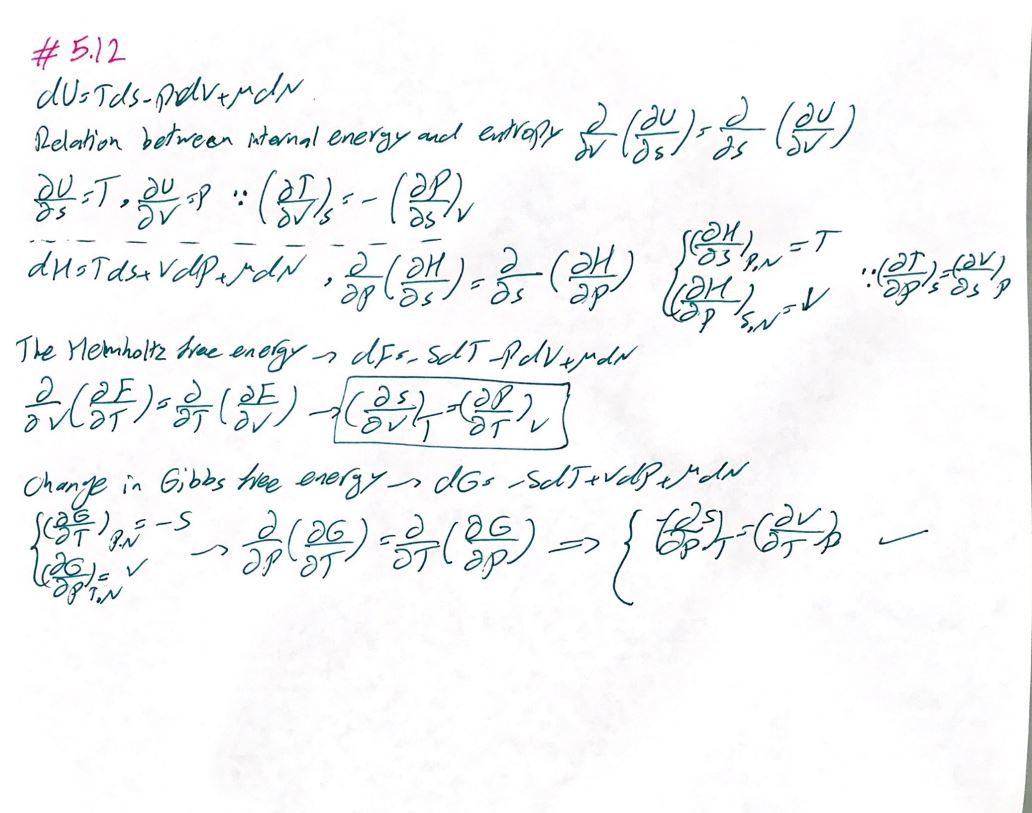 # 5.12
dU=Tds-PdV+μdN
Relation between internal energy and entropy ∂/∂V (∂U/∂s) = ∂/∂s (∂U/∂V)
∂U/∂s = T, ∂U/∂V = P ∵ (∂T/∂V)_s = - (∂P/∂s)_V
dH=Tds+VdP+μdN, ∂/∂P (∂H/∂s) = ∂/∂s (∂H/∂P) { (∂H/∂s)_P,N = T (∂H/∂P)_S,N = V ∵ (∂T/∂P)_s = (∂V/∂s)_P
The Helmholtz free energy → dF=-SdT-PdV+μdN
∂/∂V (∂F/∂T) = ∂/∂T (∂F/∂V) → (∂S/∂V)_T = (∂P/∂T)_V
Change in Gibbs free energy → dG= -SdT+VdP+μdN
{ (∂G/∂T)_P,N = -S (∂G/∂P)_T,N = V → ∂/∂P (∂G/∂T) = ∂/∂T (∂G/∂P) ⇒ { (∂S/∂P)_T = (∂V/∂T)_P ✓